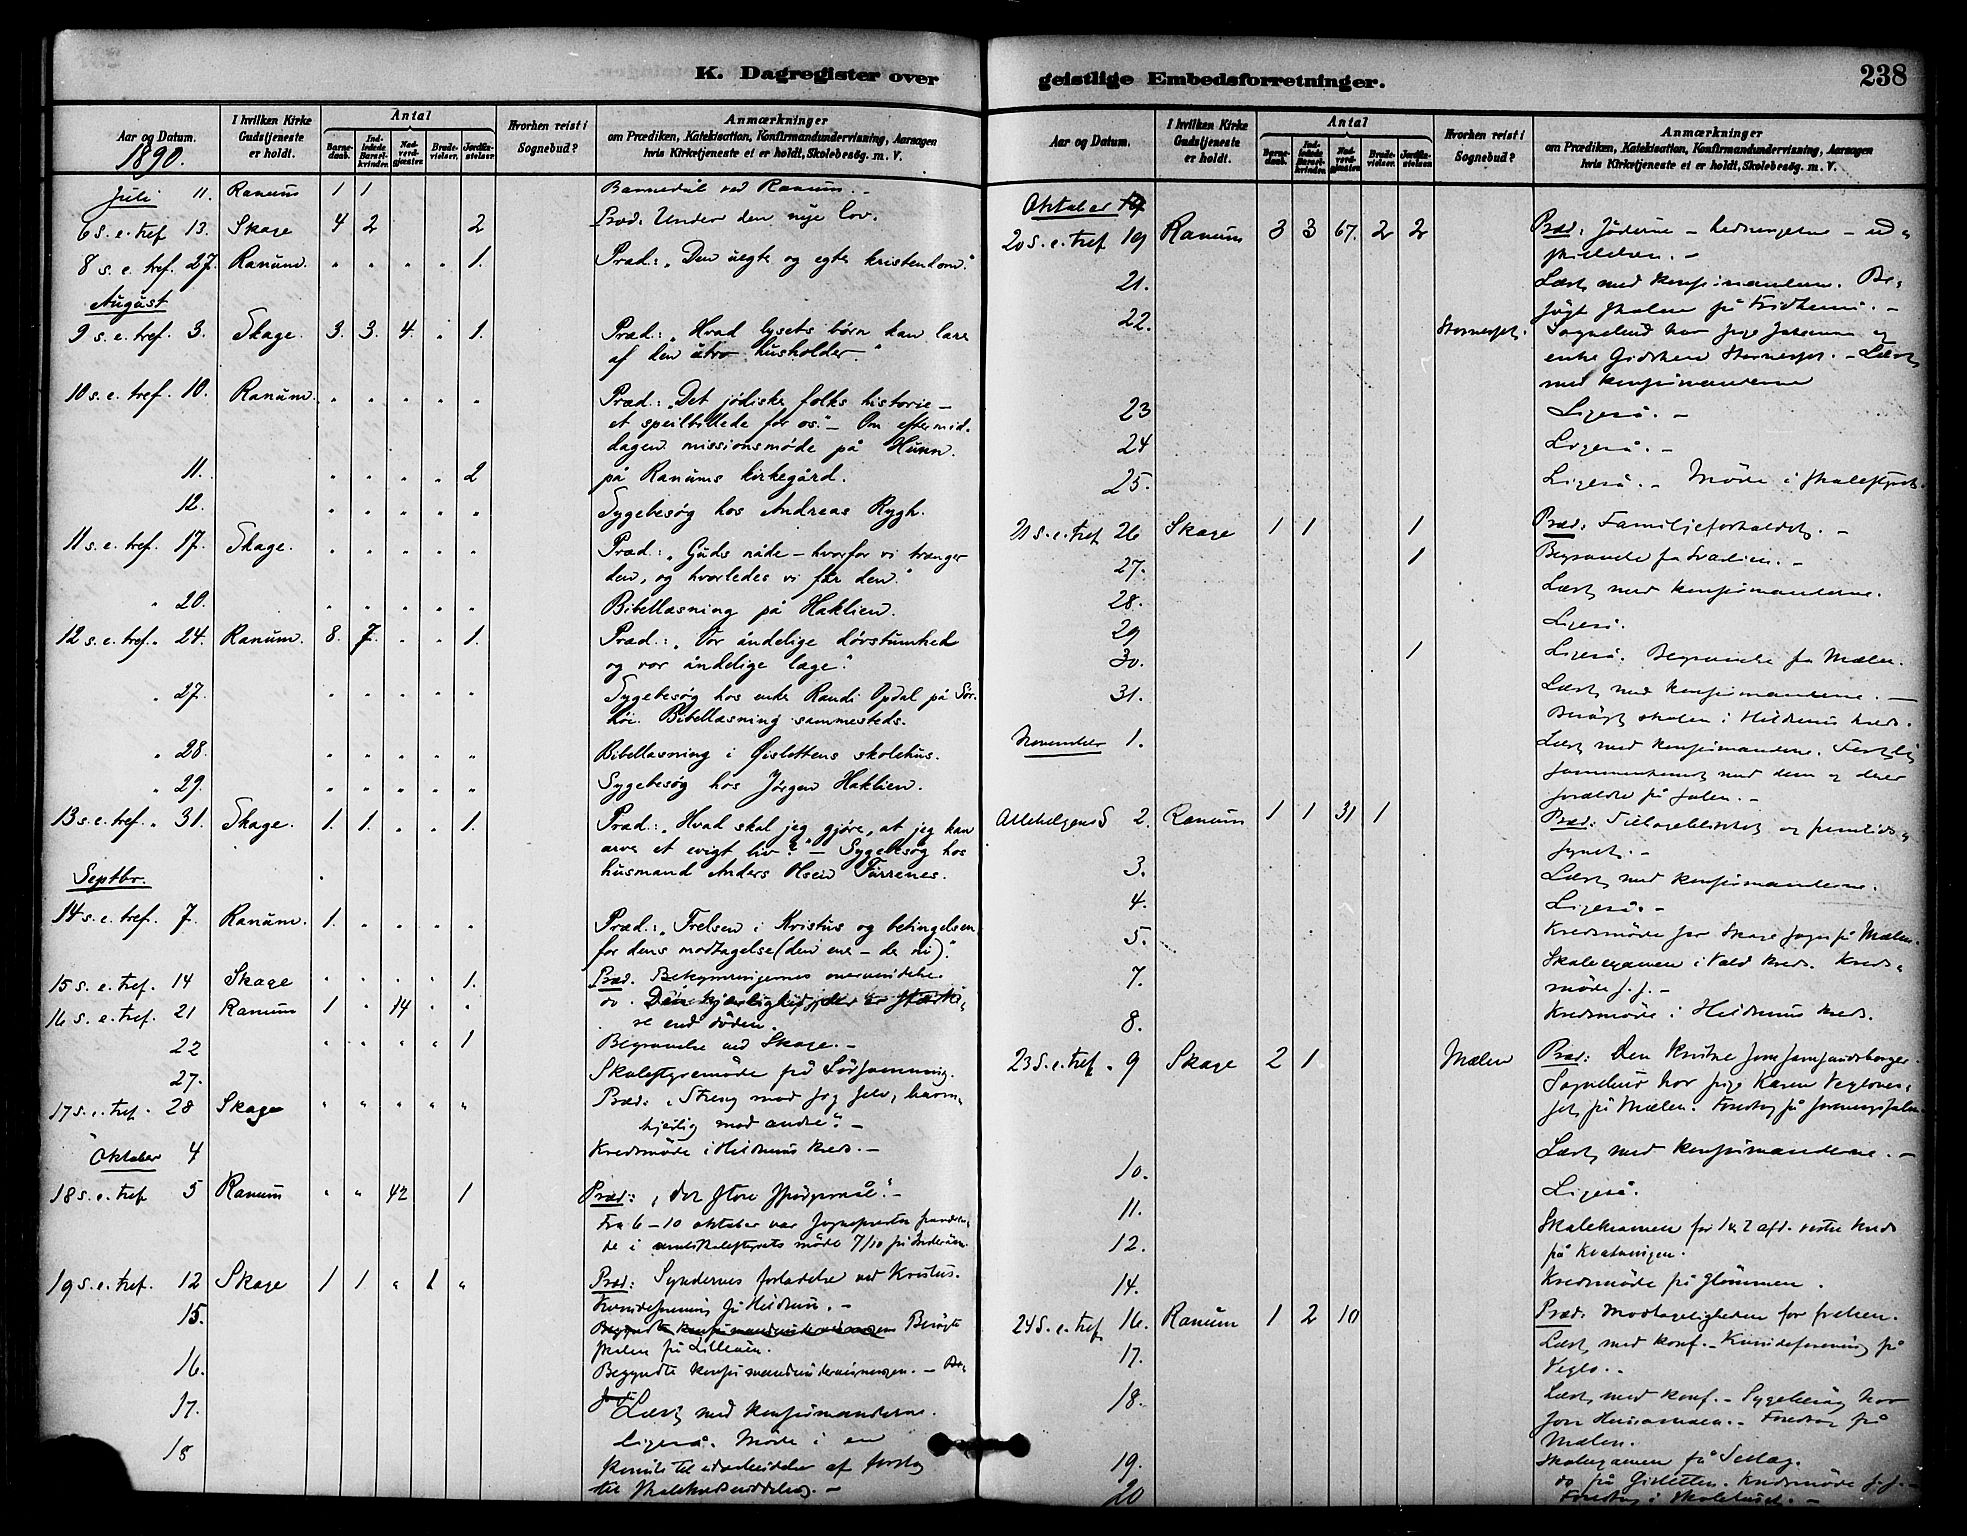 K. Dagregister over
Aar og Datum.
I hvilken Kirke Gudstjeneste er holdt.
Antal
Barnedaab.
Indledede Barselkvinder.
Nadverdgjæster.
Brudevielser.
Jordfæstelser.
Hvorhen reist i Sognebud?
Anmærkninger
om Prædiken, Katekisation, Konfirmandundervisning, Aarsagen
hvis Kirketjeneste ei er holdt, Skolebesøg. m. V.
1890.
Juli 11. Ranum 1 1 Barnedåb ved Ranum. -
6 s. e. tref 13. Skage 4 2 2 Præd: Under den nye lov.
8 s. e. tref. 27. Ranum. " " " " 1. Præd.: "Den uegte og egte kristendom."
August
9 s. e. tref. 3. Skage. 3. 3. 4. " 1. Præd.: "Hvad lysets børn kan lære
af den utro husholder."
10 s. e. tref. 10. Ranum. " " " " " Præd.: "Det jødiske folks historie -
et speilbillede for os." - Om eftermid-
dagen missionsmøde på Hunn.
11. " " " " 2 på Ranums kirkegård.
12. " " " " " Sygebesøg hos Andreas Rygh.
11 s. e. tref. 17. Skage. " " " " " Præd.: "Guds nåde - hvorfor vi trænger
den, og hvorledes vi får den."
" 20. " " " " " Bibellæsning på Haklien.
12 s. e. tref. " 24. Ranum. 8. 7. " " 1. Præd.: "Vor åndelige døvstumhed
og vor åndelige læge."
" 27. " " " " " Sygebesøg hos enke Randi Opdal på Sør-
høi. Bibellæsning sammesteds.
" 28. " " " " " Bibellæsning i Øislettens skolehus.
" 29. " " " " " Sygebesøg hos Jørgen Haklien.
13 s. e. tref. " 31. Skage. 1. 1. " " 1. Præd.: "Hvad skal jeg gjøre, at jeg kan
arve et evigt liv?" - Sygebesøg hos
husmand Anders Olsen
Septbr.
14 s. e. tref. 7. Ranum. 1. " " " " Præd.: "Frelsen i Kristus og betingelsen
for dens modtagelse (den ene - de ni)."
15 s. e. tref. 14 Skage " " " " 1. Præd. Bekymringernes overvindelse
16 s. e. tref. 21 Ranum 1 " 14 " " do. Den kjærlighed, der er stærke-
re end døden.
22 " " " " 1 Begravelse ved Skage. -
27. Skolestyremøde
17 s. e. tref. 28 Skage " " " " " Præd: "Streng mod sig selv, barm-
hjertig mod andre." -
Oktober 4 Kredsmøde i Hildrems kreds. -
18 s. e. tref 5 Ranum " " 42 1 Præd: "Det store spørgsmål." -
Fra 6 - 10 oktober var sognepresten fraværen-
de i amtsskolestyrets møde 7/10 på Inderøen.
19 s. e. tref. 12 Skage 1 1 " 1 " Præd: Syndernes forladelse ved Kristus.
15. Kvindeforening på Hildrem. -
Begyndte konfirmandundervisningen Besøgte
skolen på
16. Begyndte konfirmandundervisningen. - Be-
søgt
17. Læst med konfirmanderne.
18 Ligeså. Møde i en
komite til udarbeidelse af forslag
til skolekredsinddeling. -
geistlige Embedsforretninger. 238
Aar og Datum.
I hvilken Kirke Gudstjeneste er holdt.
Antal
Barnedaab.
Indledede Barselkvinder.
Nadverdgjæster.
Brudevielser.
Jordfæstelser.
Hvorhen reist i Sognebud?
Anmærkninger
om Prædiken, Katekisation, Konfirmandundervisning, Aarsagen
hvis Kirketjeneste ei er holdt, Skolebesøg. m. V.
Oktober
20 s. e. tref 19 Ranum 3 3 67. 2 2 Præd: Jøderne - hedningerne - ud-
skillelsen. -
21. Læst med konfirmanderne. Be-
søgt skolen på -
22. Sognebud hos pige Johanna og
enke -- Læst
med konfirmanderne
23 Ligeså. -
24 Ligeså. -
25. Ligeså. - Møde i skolestyret.
21 s. e. tref 26 Skage 1 1 1 Præd: Familjeforholdet. -
27. 1 Begravelse fra -
28. Læst med konfirmanderne.
29 Ligeså.
30. 1 Ligeså. Begravelse fra Mælen.
31. Læst med konfirmanderne. -
Besøgt skolen i Hildrems kreds.
November 1. Læst med konfirmanderne. Festlig
sammenkomst med dem og deres
forældre på salen. -
Allehelgens S 2. Ranum 1 1 31 1 Præd: Tilbageblikket og fremtids-
synet. -
3. Læst med konfirmanderne.
4. Ligeså. -
5. Kredsmøde for Skage sogn på Mælen.
7. Skoleexamen i Vald kreds. Kreds-
møde s. s. -
8. Kredsmøde i Hildrems kreds.
23 s. e. tref. " 9 Skage 2 1 Mælen Præd: Den kristne som samfundsborger
Sognebud hos pige Karen
på Mælen. Foredrag på
10. Læst med konfirmanderne. -
11. Ligeså.
12. Skoleexamen for 1 & 2 afd. vestre kreds
på Kvatningen.
14. Kredsmøde på Glømmen.
24 s. e. tref 16. Ranum 1 2 10 Præd: Modtageligheden for frelsen.
17. Læst med konf. - Kvindeforening på
Veglo. -
18. Læst med konf. - Sygebesøg hos
- Foredrag på
Mælen.
19. Skoleexamen på
20 do på Øisletten. Kredsmøde s. s. -
Foredrag i skolehuset. -